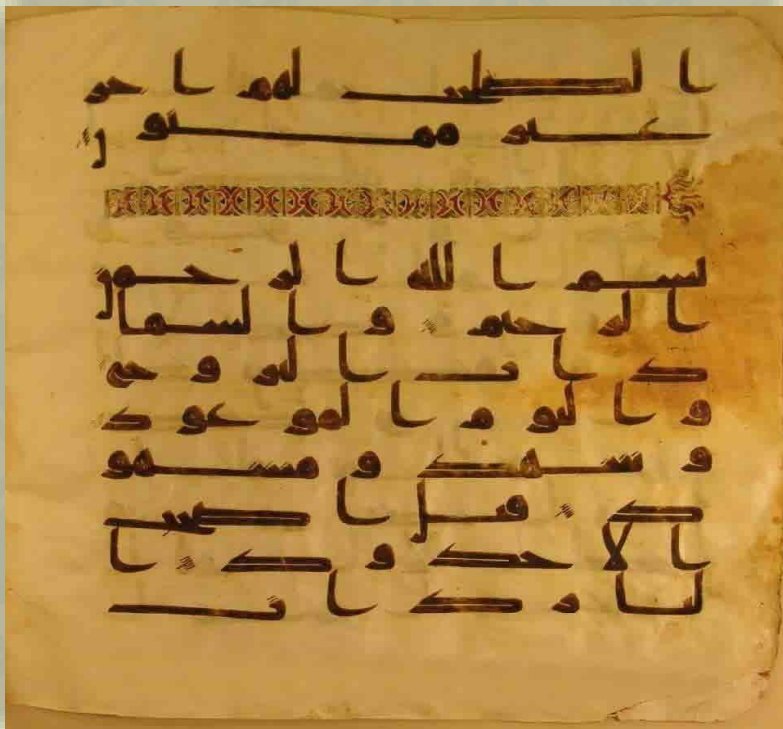 الصلحت لهم اجر
غير ممنون
بسم الله الرحمن
الرحيم والسما
ذات البروج
واليوم الموعود
وشهد ومشهو
د قتل اصحب
الاخدود ا
لنار ذات